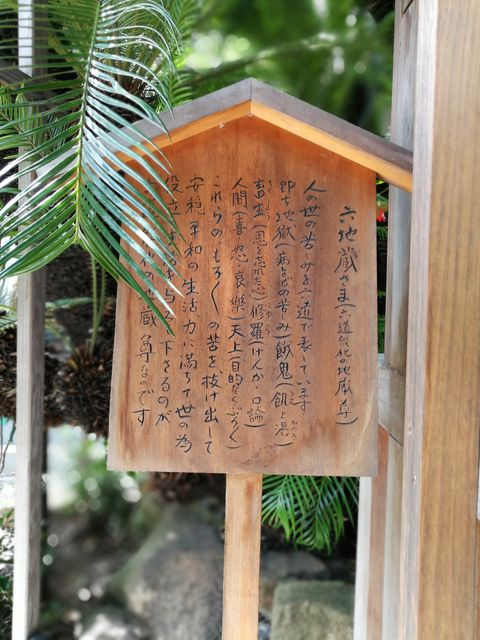 六地蔵さま(六道能化の地蔵尊)
人の世の苦しみを六道で表しています
即ち地獄(病などの苦み)餓鬼(飢と渇)
畜生(恩を忘れた心)修羅(けんか、口論)
人間(喜怒哀樂)天上(目的なくぶらぶらく)
これらのもろもろくの苦を抜け出して
安穏、平和の生活、力に満ちて世の為
役立 下さるのが
の地蔵尊なのです